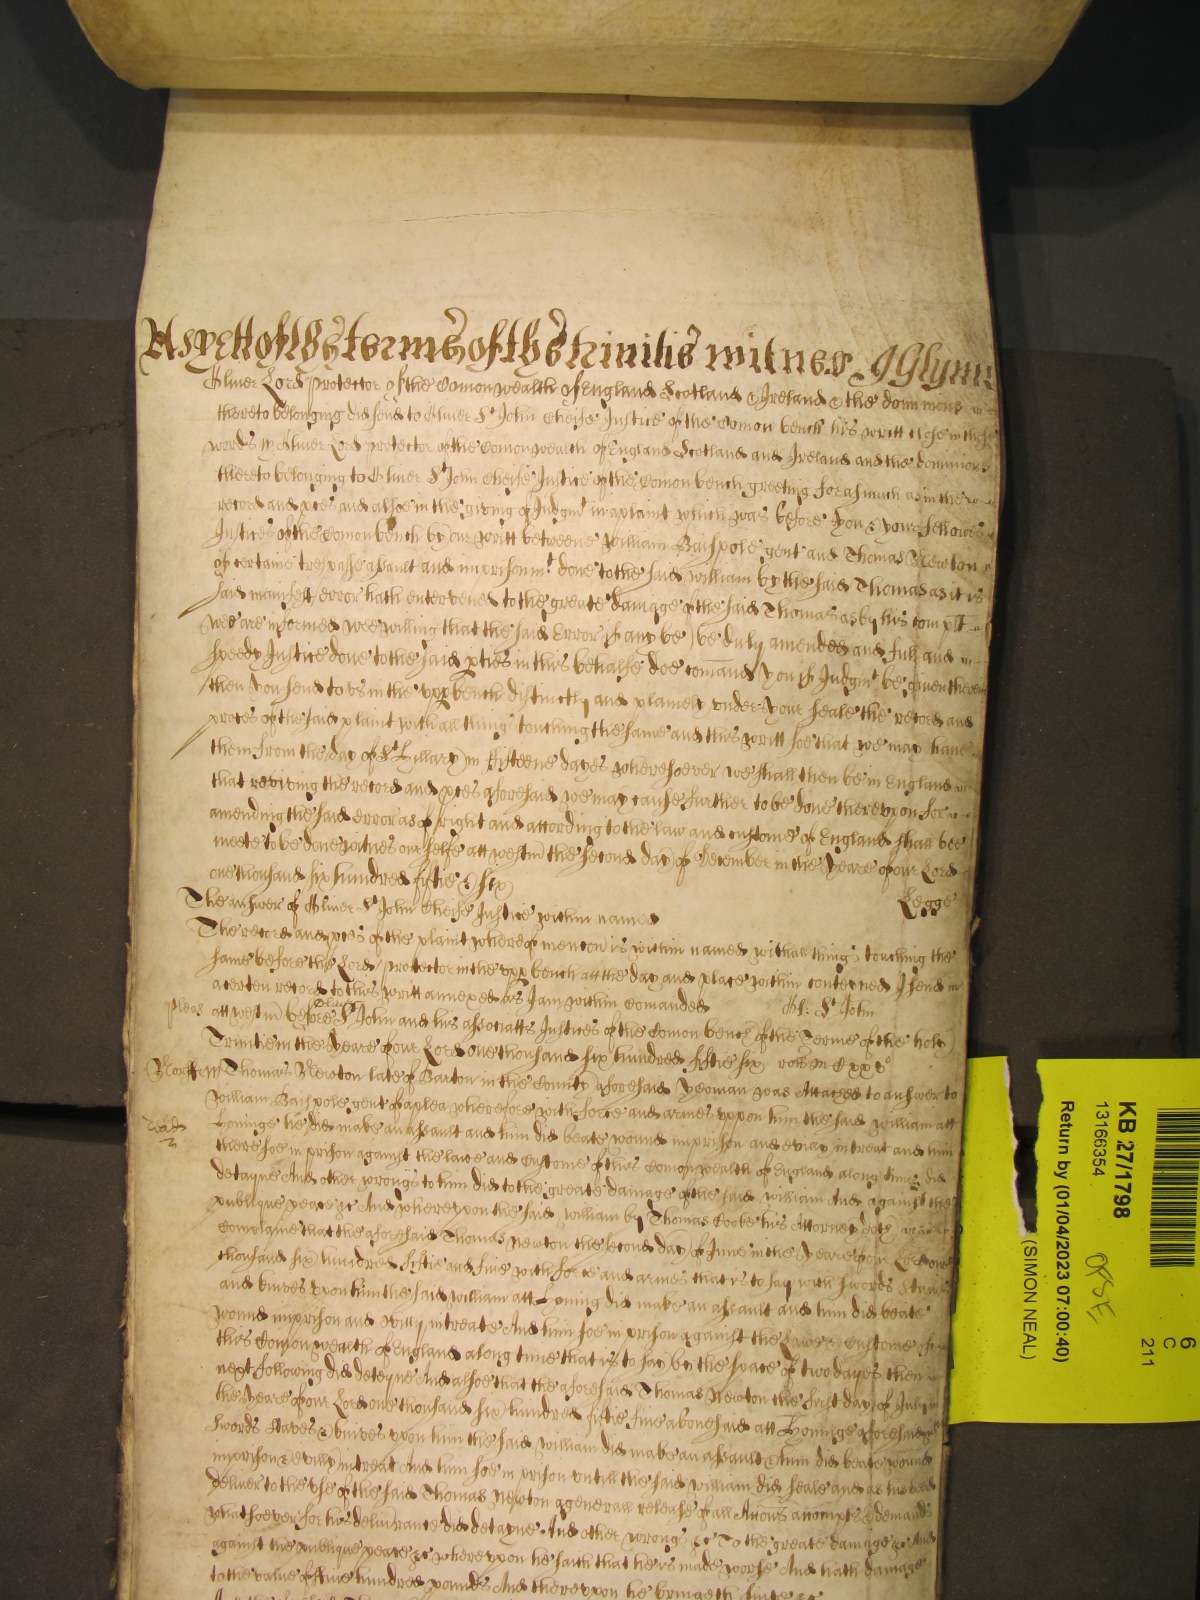 As yett of the terme of the Trinitie witnes J Glynn
Oliver Lord protector of the Comonwealth of England Scotland & Ireland & the dominions
thereto belonging did send to Oliver St John Cheife Justice of the Comon bench his writt close in these
words ss Oliver Lord protector of the Comonwealth of England Scotland and Ireland and the dominions
thereto belonging to Oliver St John Cheife Justice of the Comon bench greeting forasmuch as in the
record and pces and alsoe in the giving of Judgmt in a plaint which was before you & your fellowes
Justices of the Comon bench by our writt betweene William Baispole gent and Thomas Newton
of certaine trespasse assault and imprisonmt done to the said William by the said Thomas as it is
said manifest error hath entervened to the great damage of the said Thomas as by his complt
wee are informed wee willing that the said Error if any be be duly amended and full and
speedy Justice done to the said pties in this behalfe doe comand you if Judgmt be given therein
then you send to us in the upp bench distinctly and plainely under your seale the record and
proces of the said plaint with all things touching the same and this writt soe that we may have
them from the day of St Hillary in fifteene dayes wheresoever we shall then be in England
that reviewing the record and pces aforesaid we may cause further to be done thereupon for
amending the said error as of right and according to the law and custome of England shall bee
meete to be done witnes our selfe att Westm the second day of December in the yeare of our Lord
one thousand six hundred fiftie & six
Legge
The answer of Oliver St John Cheife Justice within named
The record and pces of the plaint whereof mencon is within named with all things touching the
same before the Lord protector in the upp bench att the day and place within conteyned I send in
a certen record to this writt annexed as I am within Comanded Ol: St John
Pleas att Westm before Oliver St John and his associatts Justices of the Comon bench of the Terme of the holy
Trinitie in the yeare of our Lord one thousand six hundred fiftie six
Norff ss Thomas Newton late of Barton in the County aforesaid yeoman was attached to answer to
William Baispole gent of a plea wherefore with force and armes uppon him the said William att
Honinge he did make an assault and him did beate wound imprison and evilly intreat and him
there soe in prison against the lawe and Custome of this Comonwealth of England a long time did
detayne And other wrongs to him did to the greate damage of the said William And against the
publique peace &c And whereupon the said William by Thomas Cooke his Attorney doth
Complaine that the aforesaid Thomas Newton the second day of June in the yeare of our Lord one
thousand six hundred fiftie and five with force and armes that is to say with swords staves
and knives upon him the said William att Honing did make an assault and him did beate
wound imprison and evilly intreate And him soe in prison against the Lawe & Custome of
this Comonwealth of England a long time that is to say by the space of two dayes then
next following did deteyne And alsoe that the aforesaid Thomas Newton the first day of July in
the yeare of our Lord one thousand six hundred fiftie five abovesaid att Honinge aforesaid
swords staves & knives upon him the said William did make an assault & him did beate wound
imprison & evilly intreat And him soe in prison untill the said William did seale and as his deed
deliver to the use of the said Thomas Newton a generall release of all Accons accompts & demands
whatsoever for his deliverance did detayne And other wrongs &c To the greate damage &c And
against the publique peace &c whereupon he saith that he is made worse And hath damage
to the value of five hundred pounds And thereupon he bringeth suite &c
6
C
211
KB 27/1798
13166354
OFSE
Return by (01/04/2023 07:00:40)
(SIMON NEAL)